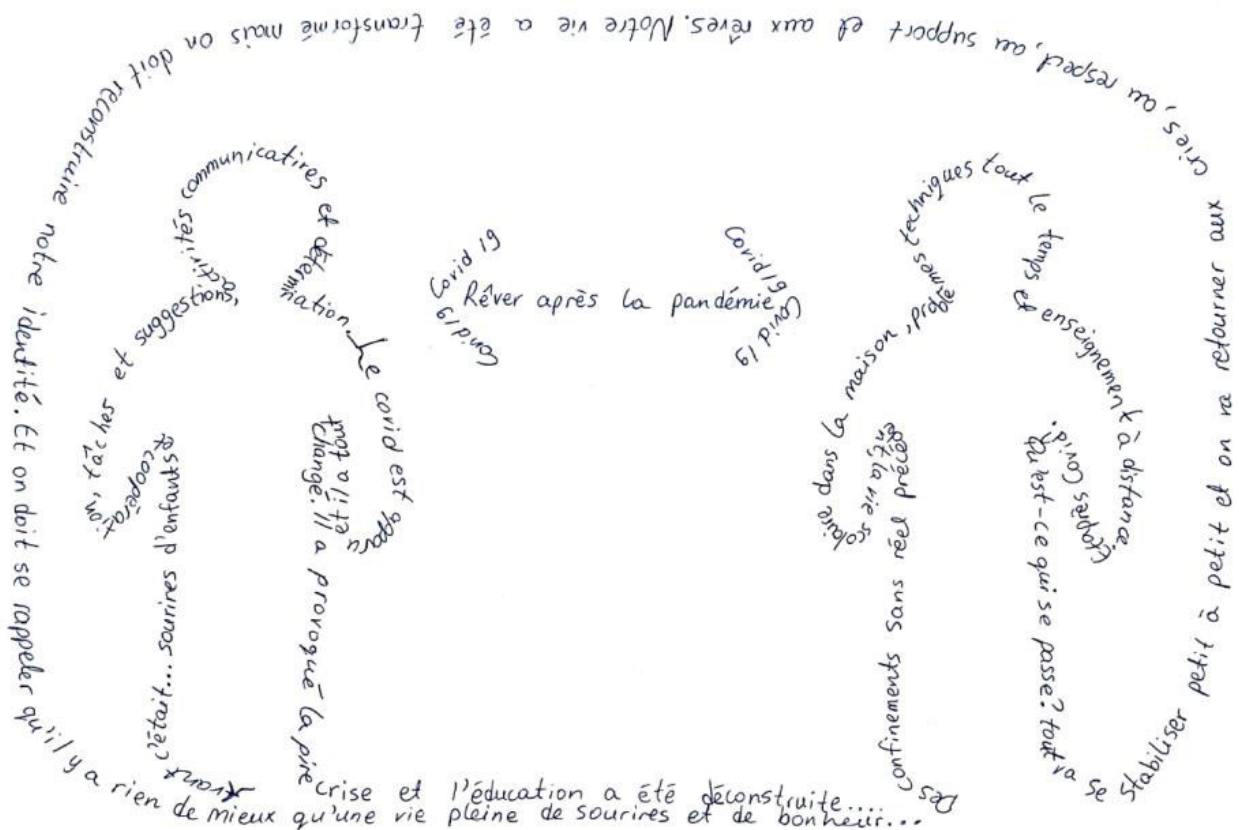 Rêver après la pandémie
Covid 19
Covid 19
Covid 19
Covid 19
Avant c'était... sourires d'enfants
et coopération, tâches et suggestions,
activités communicatives et détermination. Le covid est apparu
et il a tout
changé. Il a provoqué la pire
crise et l'éducation a été déconstruite....
Des confinements sans réel précédent, la vie scolaire dans la maison, problèmes techniques tout le temps et enseignement à distance.
Et après Covid.
Qu'est-ce qui se passe? tout va se stabiliser petit à petit et on va retourner aux cries, au respect, au support et aux rêves. Notre vie a été transformé mais on doit reconstruire notre identité. Et on doit se rappeler qu'il y a rien de mieux qu'une vie pleine de sourires et de bonheur...